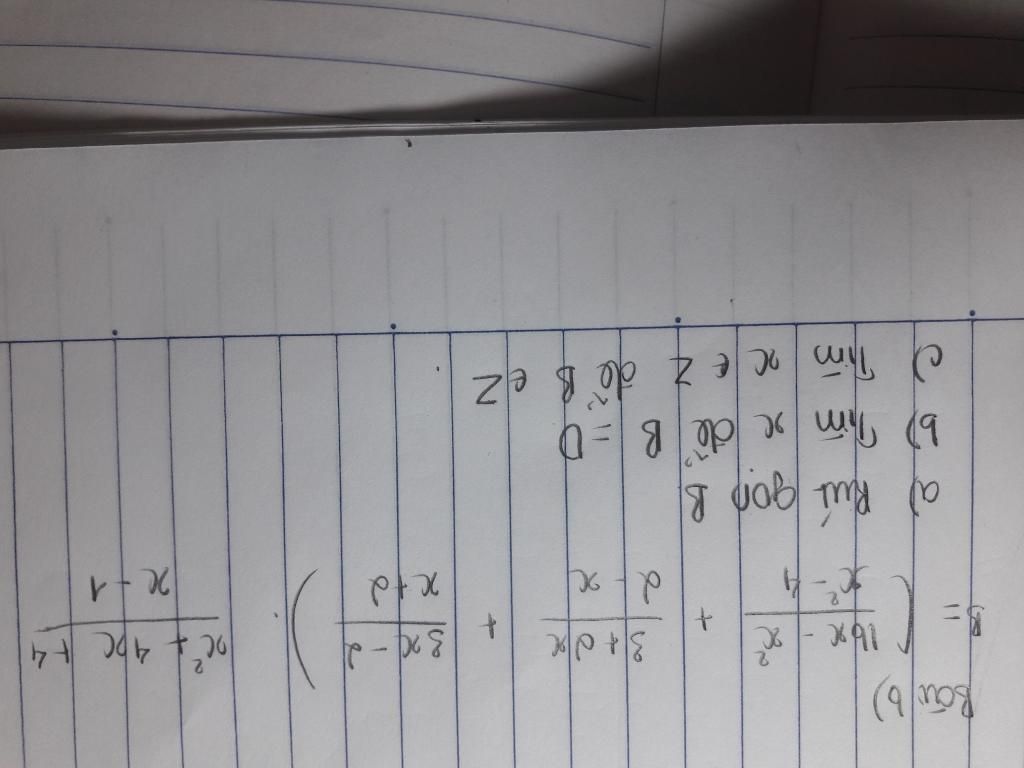 Bài b)
B = ( \frac{16x - x²}{x² - 4} + \frac{3 + 2x}{2 - x} + \frac{3x - 2}{x + 2} ) . \frac{x² + 4x + 4}{x - 1}
a) Rút gọn B
b) Tìm x để B = 0
c) Tìm x ∈ Z để B ∈ Z